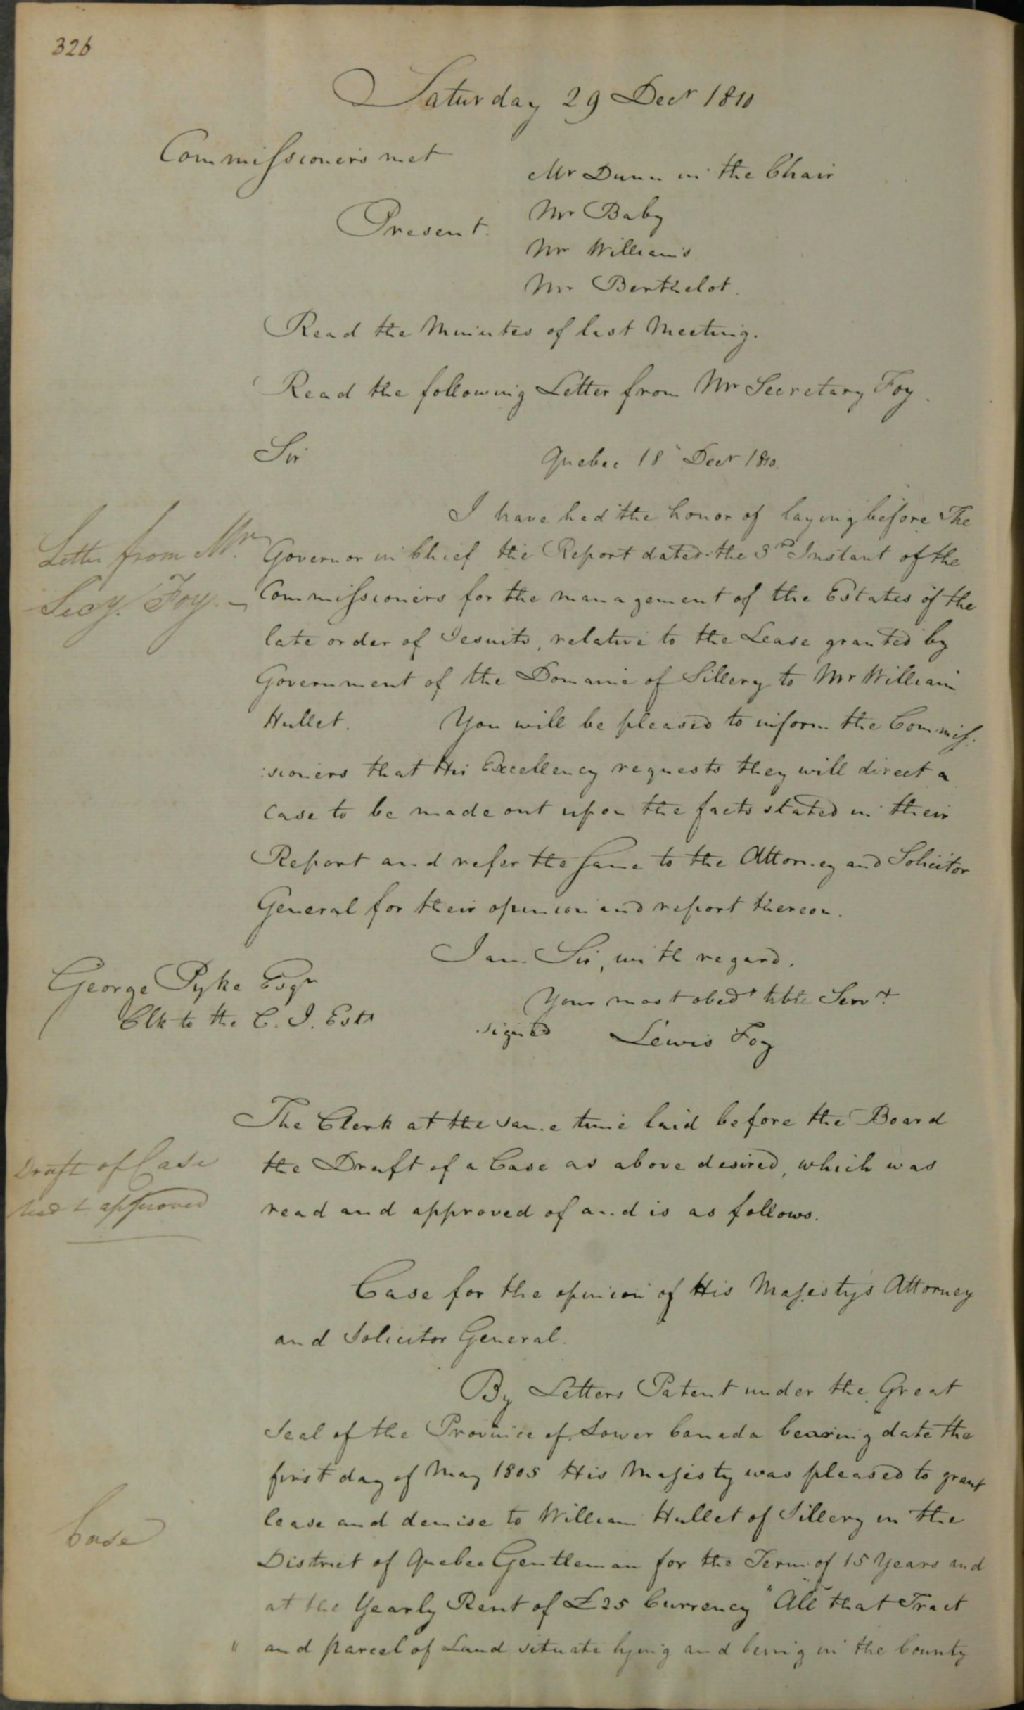 326
Saturday 29 Decr 1810
Commissioners met
Mr Dunn in the Chair
Present
Mr Baby
Mr Williams
Mr Berthelot.
Read the Minutes of last Meeting.
Read the following Letter from Mr Secretary Foy.
Sir
Quebec 18 Decr 1810.
I have had the honor of laying before The
Letter from Mr.
Secy. Foy. —
Governor in Chief the Report dated the 3rd Instant of the
Commissioners for the management of the Estates of the
late order of Jesuits, relative to the Lease granted by
Government of the Domaine of Sillery to Mr William
Hullet. You will be pleased to inform the Commis
:sioners that His Excellency requests they will direct a
Case to be made out upon the facts stated in their
Report and refer the same to the Attorney and Solicitor
General for their opinion and report thereon.
I am Sir, with regard.
Your most obedt hble Servt
signed Lewis Foy
George Pyke Esqr
Clk to the C. J. Ests
The Clerk at the same time laid before the Board
Draft of Case
read & approved
the Draft of a Case as above desired, which was
read and approved of and is as follows.
Case for the opinion of His Majesty's Attorney
and Solicitor General.
By Letters Patent under the Great
Seal of the Province of Lower Canada bearing date the
first day of May 1805 His Majesty was pleased to grant
Case
lease and demise to William Hullet of Sillery in the
District of Quebec Gentleman for the Term of 15 Years and
at the Yearly Rent of £25 Currency "All that Tract
" and parcel of Land situate lying and being in the County